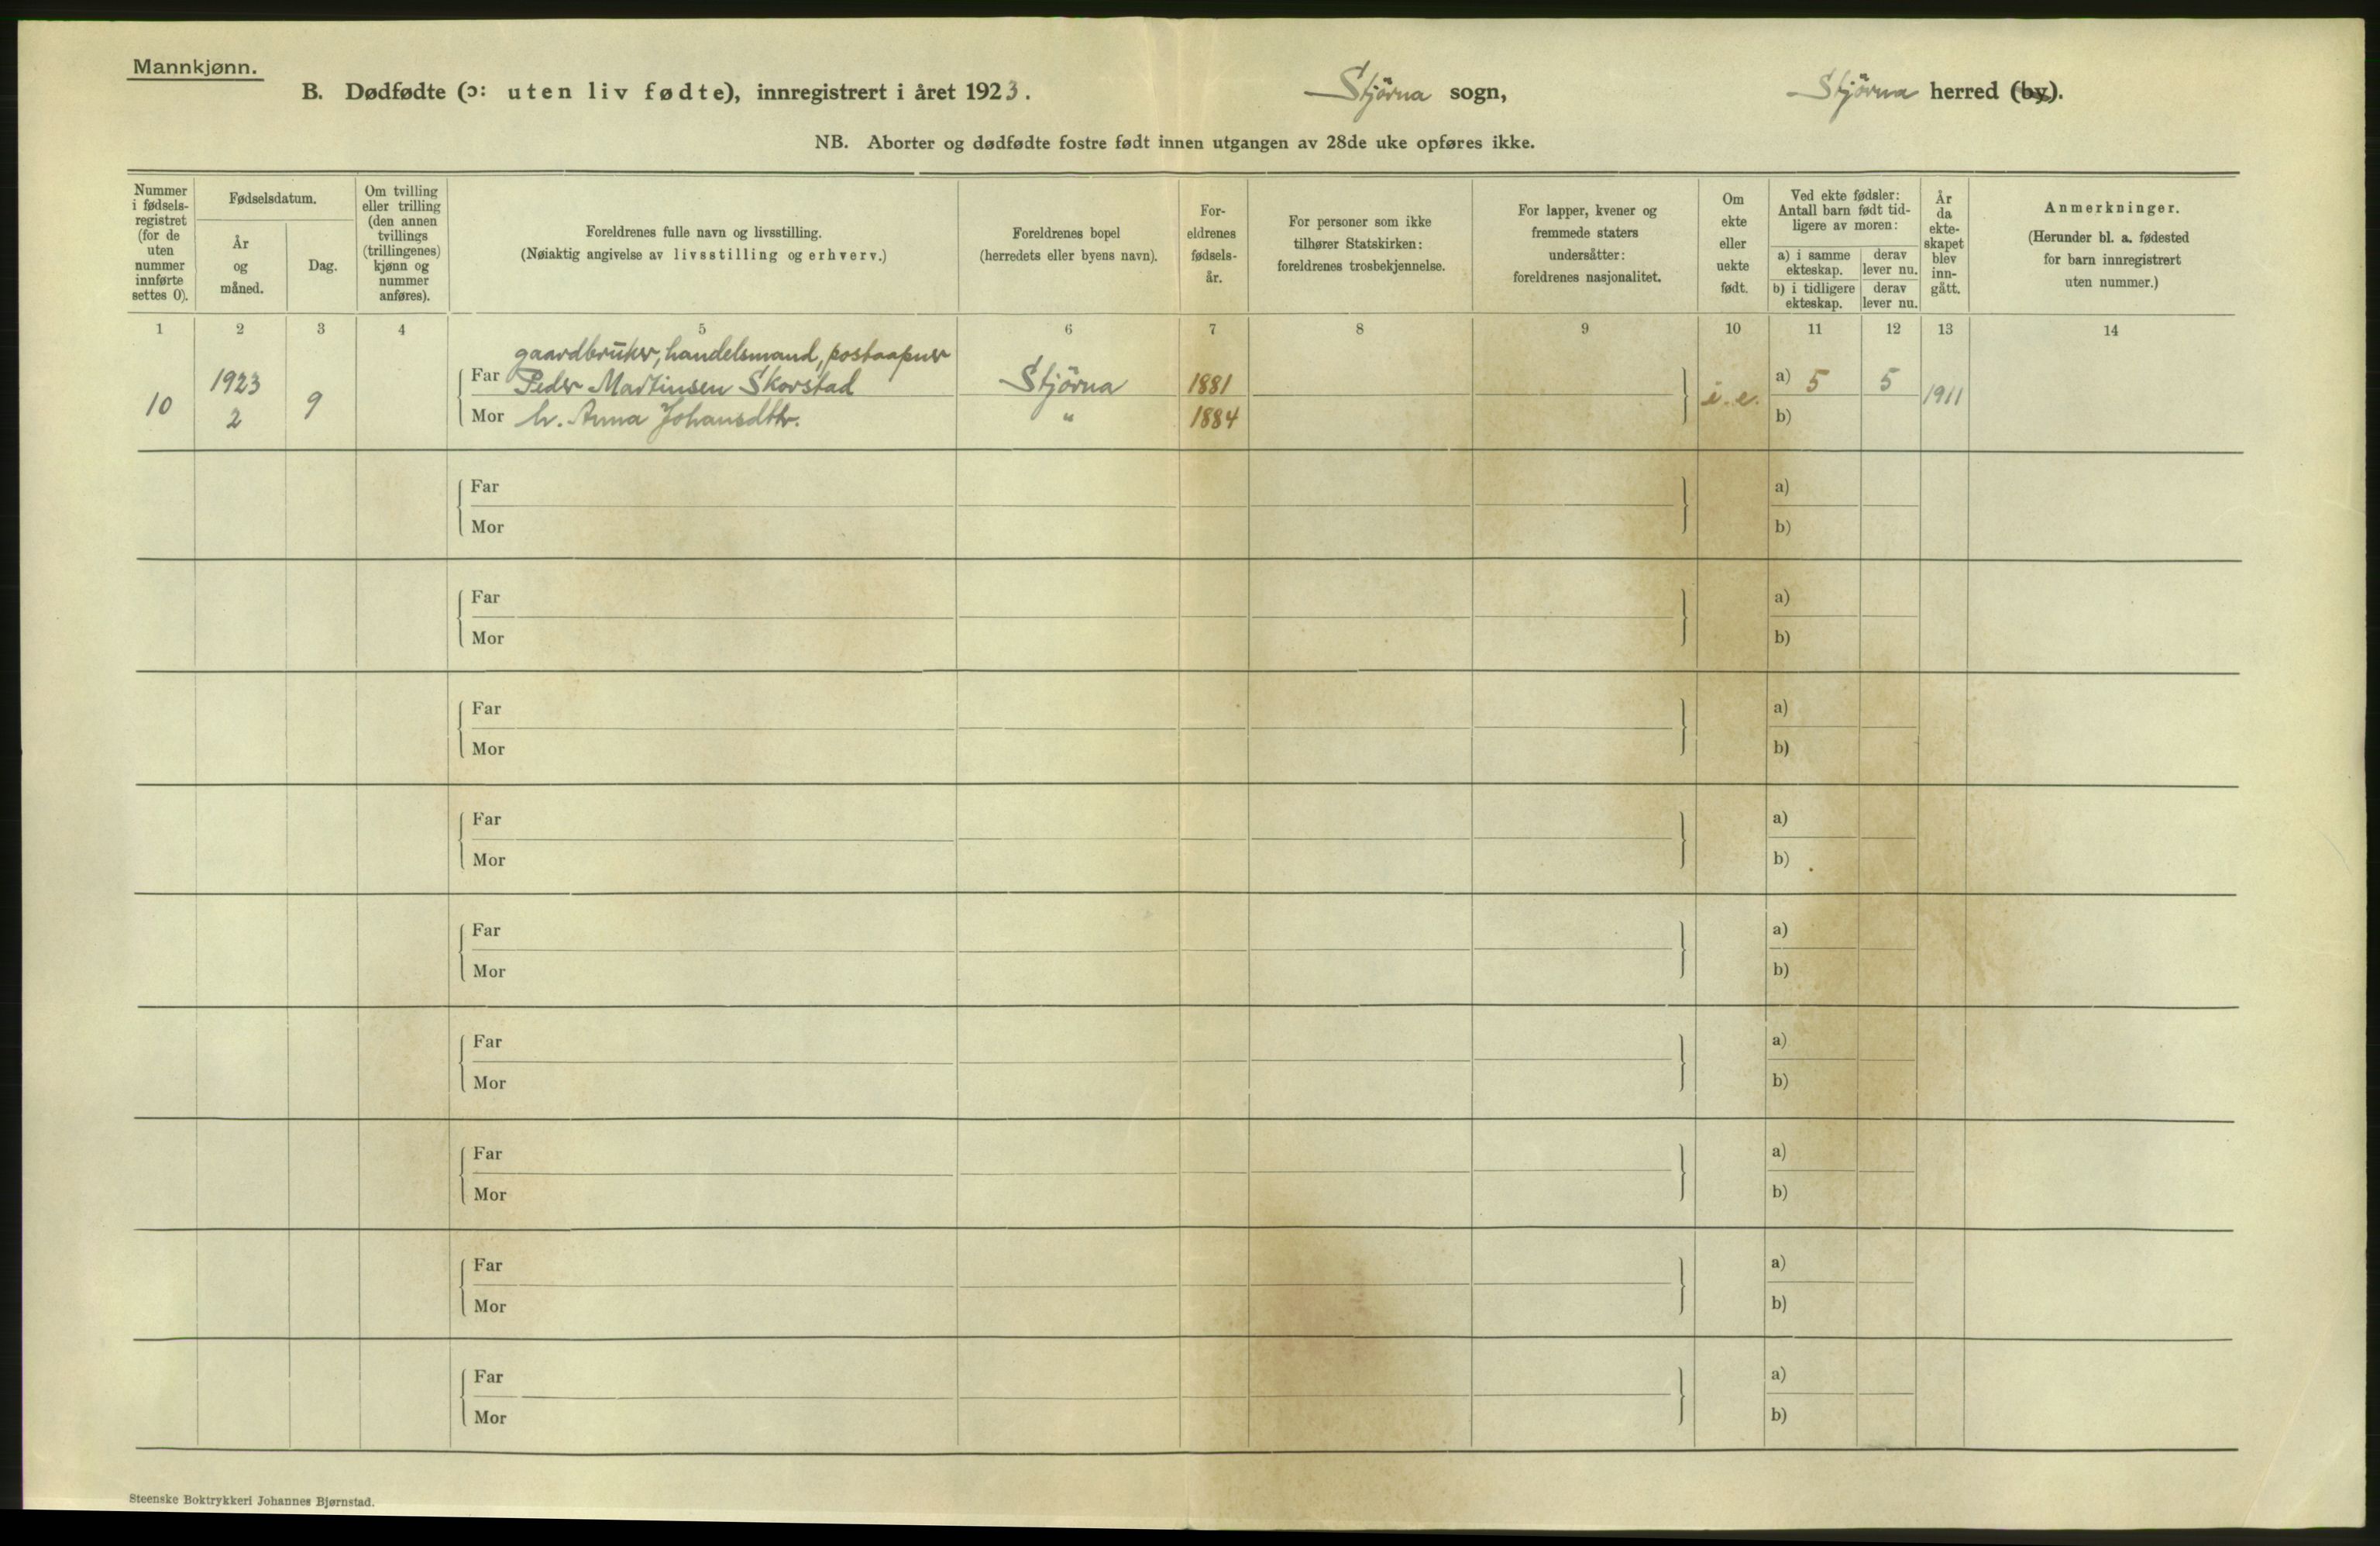 Mannkjønn.
B. Dødfødte (ɔ: uten liv fødte), innregistrert i året 1923.
Stjörna sogn,
Stjörna herred (by).
NB. Aborter og dødfødte fostre født innen utgangen av 28de uke opføres ikke.
Nummer
i fødsels-
registret
(for de
uten
nummer
innførte
settes 0).
Fødselsdatum.
År
og
måned.
Dag.
Om tvilling
eller trilling
(den annen
tvillings
(trillingenes)
kjønn og
nummer
anføres).
Foreldrenes fulle navn og livsstilling.
(Nøiaktig angivelse av livsstilling og erhverv.)
Foreldrenes bopel
(herredets eller byens navn).
For-
eldrenes
fødsels-
år.
For personer som ikke
tilhører Statskirken:
foreldrenes trosbekjennelse.
For lapper, kvener og
fremmede staters
undersåtter:
foreldrenes nasjonalitet.
Om
ekte
eller
uekte
født.
Ved ekte fødsler:
Antall barn født tid-
ligere av moren:
a) i samme
ekteskap.
derav
lever nu.
b) i tidligere
ekteskap.
derav
lever nu.
År
da
ekte-
skapet
blev
inn-
gått.
Anmerkninger.
(Herunder bl. a. fødested
for barn innregistrert
uten nummer.)
1 2 3 4 5 6 7 8 9 10 11 12 13 14
gaardbruker, handelsmand, postaapner
10 1923 2 9 Far Peder Martinsen Skorstad Stjörna 1881 i. e. a) 5 5 1911
Mor h. Anna Johansdtr. " 1884 b)
Far a)
Mor b)
Far a)
Mor b)
Far a)
Mor b)
Far a)
Mor b)
Far a)
Mor b)
Far a)
Mor b)
Far a)
Mor b)
Far a)
Mor b)
Far a)
Mor b)
Steenske Boktrykkeri Johannes Bjørnstad.